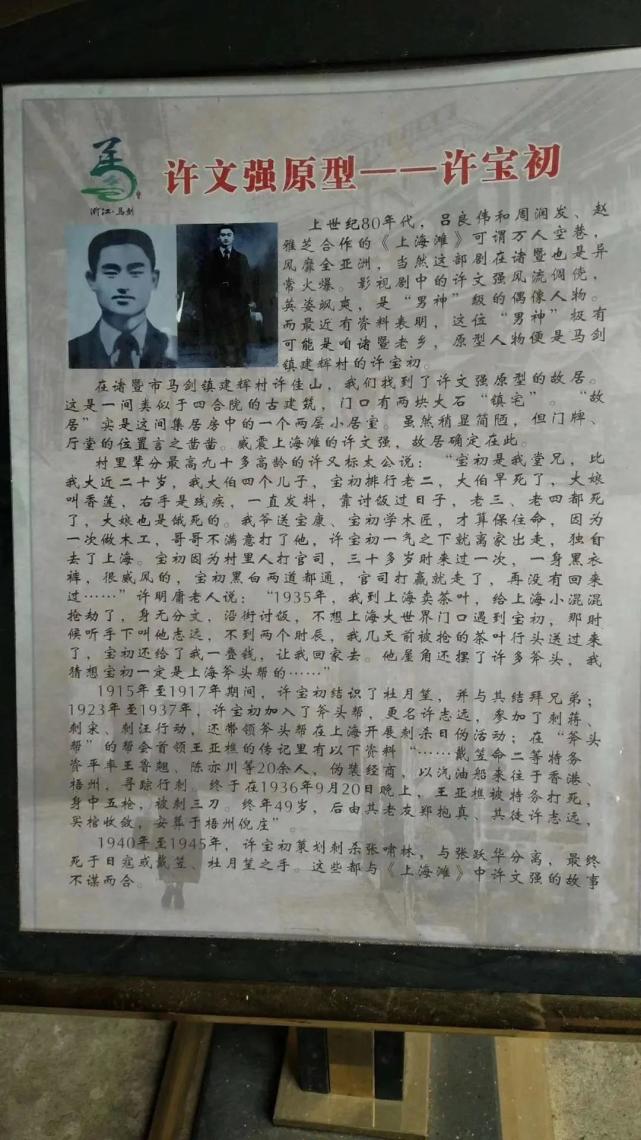 浙江·马剑
许文强原型——许宝初
上世纪80年代，吕良伟和周润发、赵
雅芝合作的《上海滩》可谓万人空巷，
风靡全亚洲，当然这部剧在诸暨也是异
常火爆。影视剧中的许文强风流倜傥，
英姿飒爽，是“男神”级的偶像人物。
而最近有资料表明，这位“男神”极有
可能是咱诸暨老乡，原型人物便是马剑
镇建辉村的许宝初。
在诸暨市马剑镇建辉村许佳山，我们找到了许文强原型的故居。
这是一间类似于四合院的古建筑，门口有两块大石“镇宅”。“故
居”实是这间集居房中的一个两层小居室。虽然稍显简陋，但门牌、
厅堂的位置言之凿凿。威震上海滩的许文强，故居确定在此。
村里辈分最高九十多高龄的许又标太公说：“宝初是我堂兄，比
我大近二十岁，我大伯四个儿子，宝初排行老二，大伯早死了，大娘
叫香莲，右手是残疾，一直发抖，靠讨饭过日子，老三、老四都死
了，大娘也是饿死的。我爷送宝康、宝初学木匠，才算保住命，因为
一次做木工，哥哥不满意打了他，许宝初一气之下就离家出走，独自
去了上海。宝初因为村里人打官司，三十多岁时来过一次，一身黑衣
裤，很威风的，宝初黑白两道都通，官司打赢就走了，再没有回来
过……”许明庸老人说：“1935年，我到上海卖茶叶，给上海小混混
抢劫了，身无分文，沿街讨饭，不想上海大世界门口遇到宝初，那时
候听手下叫他志远，不到两个时辰，我几天前被抢的茶叶行头送过来
了，宝初还给了我一叠钱，让我回家去。他屋角还摆了许多斧头，我
猜想宝初一定是上海斧头帮的……”
1915年至1917年期间，许宝初结识了杜月笙，并与其结拜兄弟；
1923年至1937年，许宝初加入了斧头帮，更名许志远，参加了刺蒋、
刺宋、刺汪行动，还带领斧头帮在上海开展刺杀日伪活动；在“斧头
帮”的帮会首领王亚樵的传记里有以下资料“……戴笠命二等特务
资平率王鲁翘、陈亦川等20余人，伪装经商，以汽油船来往于香港、
梧州，寻踪行刺。终于在1936年9月20日晚上，王亚樵被特务打死，
身中五枪，被刺三刀。终年49岁，后由其老友郑抱真、其徒许志远，
买棺收敛，安葬于梧州倪庄”。
1940年至1945年，许宝初策划刺杀张啸林，与张跃华分离，最终
死于日寇或戴笠、杜月笙之手。这些都与《上海滩》中许文强的故事
不谋而合。